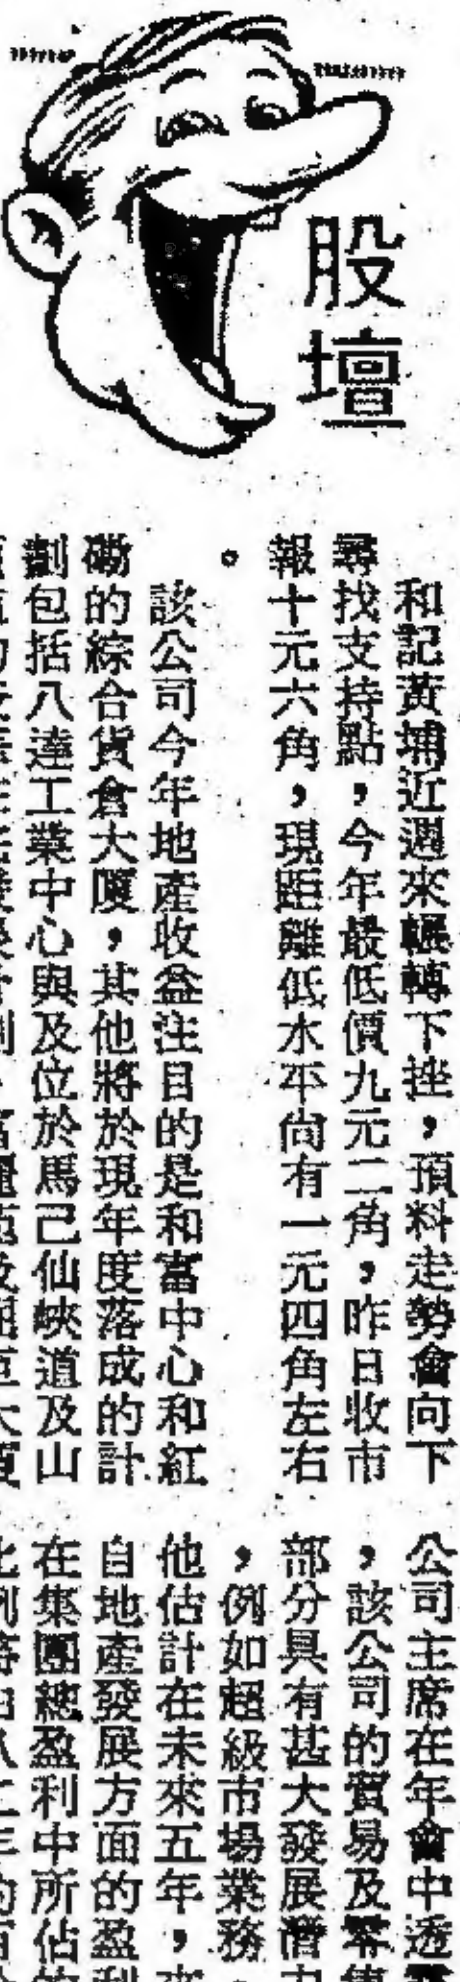 股壇
和記黃埔近週來輾轉下挫，預料走勢會向下
尋找支持點，今年最低價九元二角，昨日收市
報十元六角，現距離低水平尚有一元四角左右
。
該公司今年地產收益注目的是和富中心和紅
磡的綜合貨倉大厦，其他將於現年度落成的計
劃包括八達工業中心與及位於馬己仙峽道及山
公司主席在年會中透
，該公司的貿易及零售
部分具有甚大發展潛力
，例如超級市場業務，
他估計在未來五年，來
自地產發展方面的盈利
在集團總盈利中所佔的